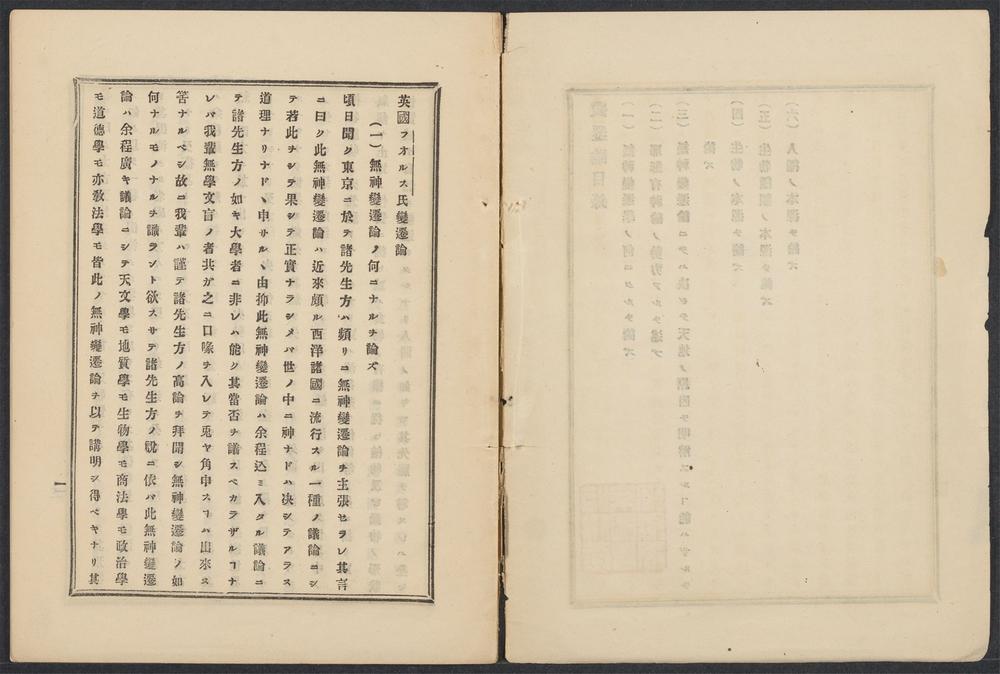 英國フオルス氏變遷論
(一)無神變遷論ノ何ニナルヲ論ズ
頃日聞ク東京ニ於テ諸先生方ハ頻リニ無神變遷論ヲ主張セラレ其言
ニ曰ク此無神變遷論ハ近來頗ル西洋諸國ニ流行スル一種ノ議論ニシ
テ若此ヲシテ果シテ正實ナラシメバ世ノ中ニ神ナドハ决シテアラス
道理ナリナドヽ申サルヽ由抑此無神變遷論ハ余程込ミ入タル議論ニ
テ諸先生方ノ如キ大學者ニ非レハ能ク其當否ヲ議スベカラザルヿナ
レバ我輩無學文盲ノ者共ガ之ニ口喙ヲ入レテ兎ヤ角申スヿハ出來ス
筈ナルベシ故ニ我輩ハ謹テ諸先生方ノ高論ヲ拜聞シ無神變遷論ノ如
何ナルモノナルヲ識ラント欲スサテ諸先生方ノ說ニ依バ此無神變遷
論ハ余程廣キ議論ニシテ天文學モ地質學モ生物學モ商法學モ政治學
モ道德學モ亦敎法學モ皆此ノ無神變遷論ヲ以テ講明シ得ベキナリ其
一